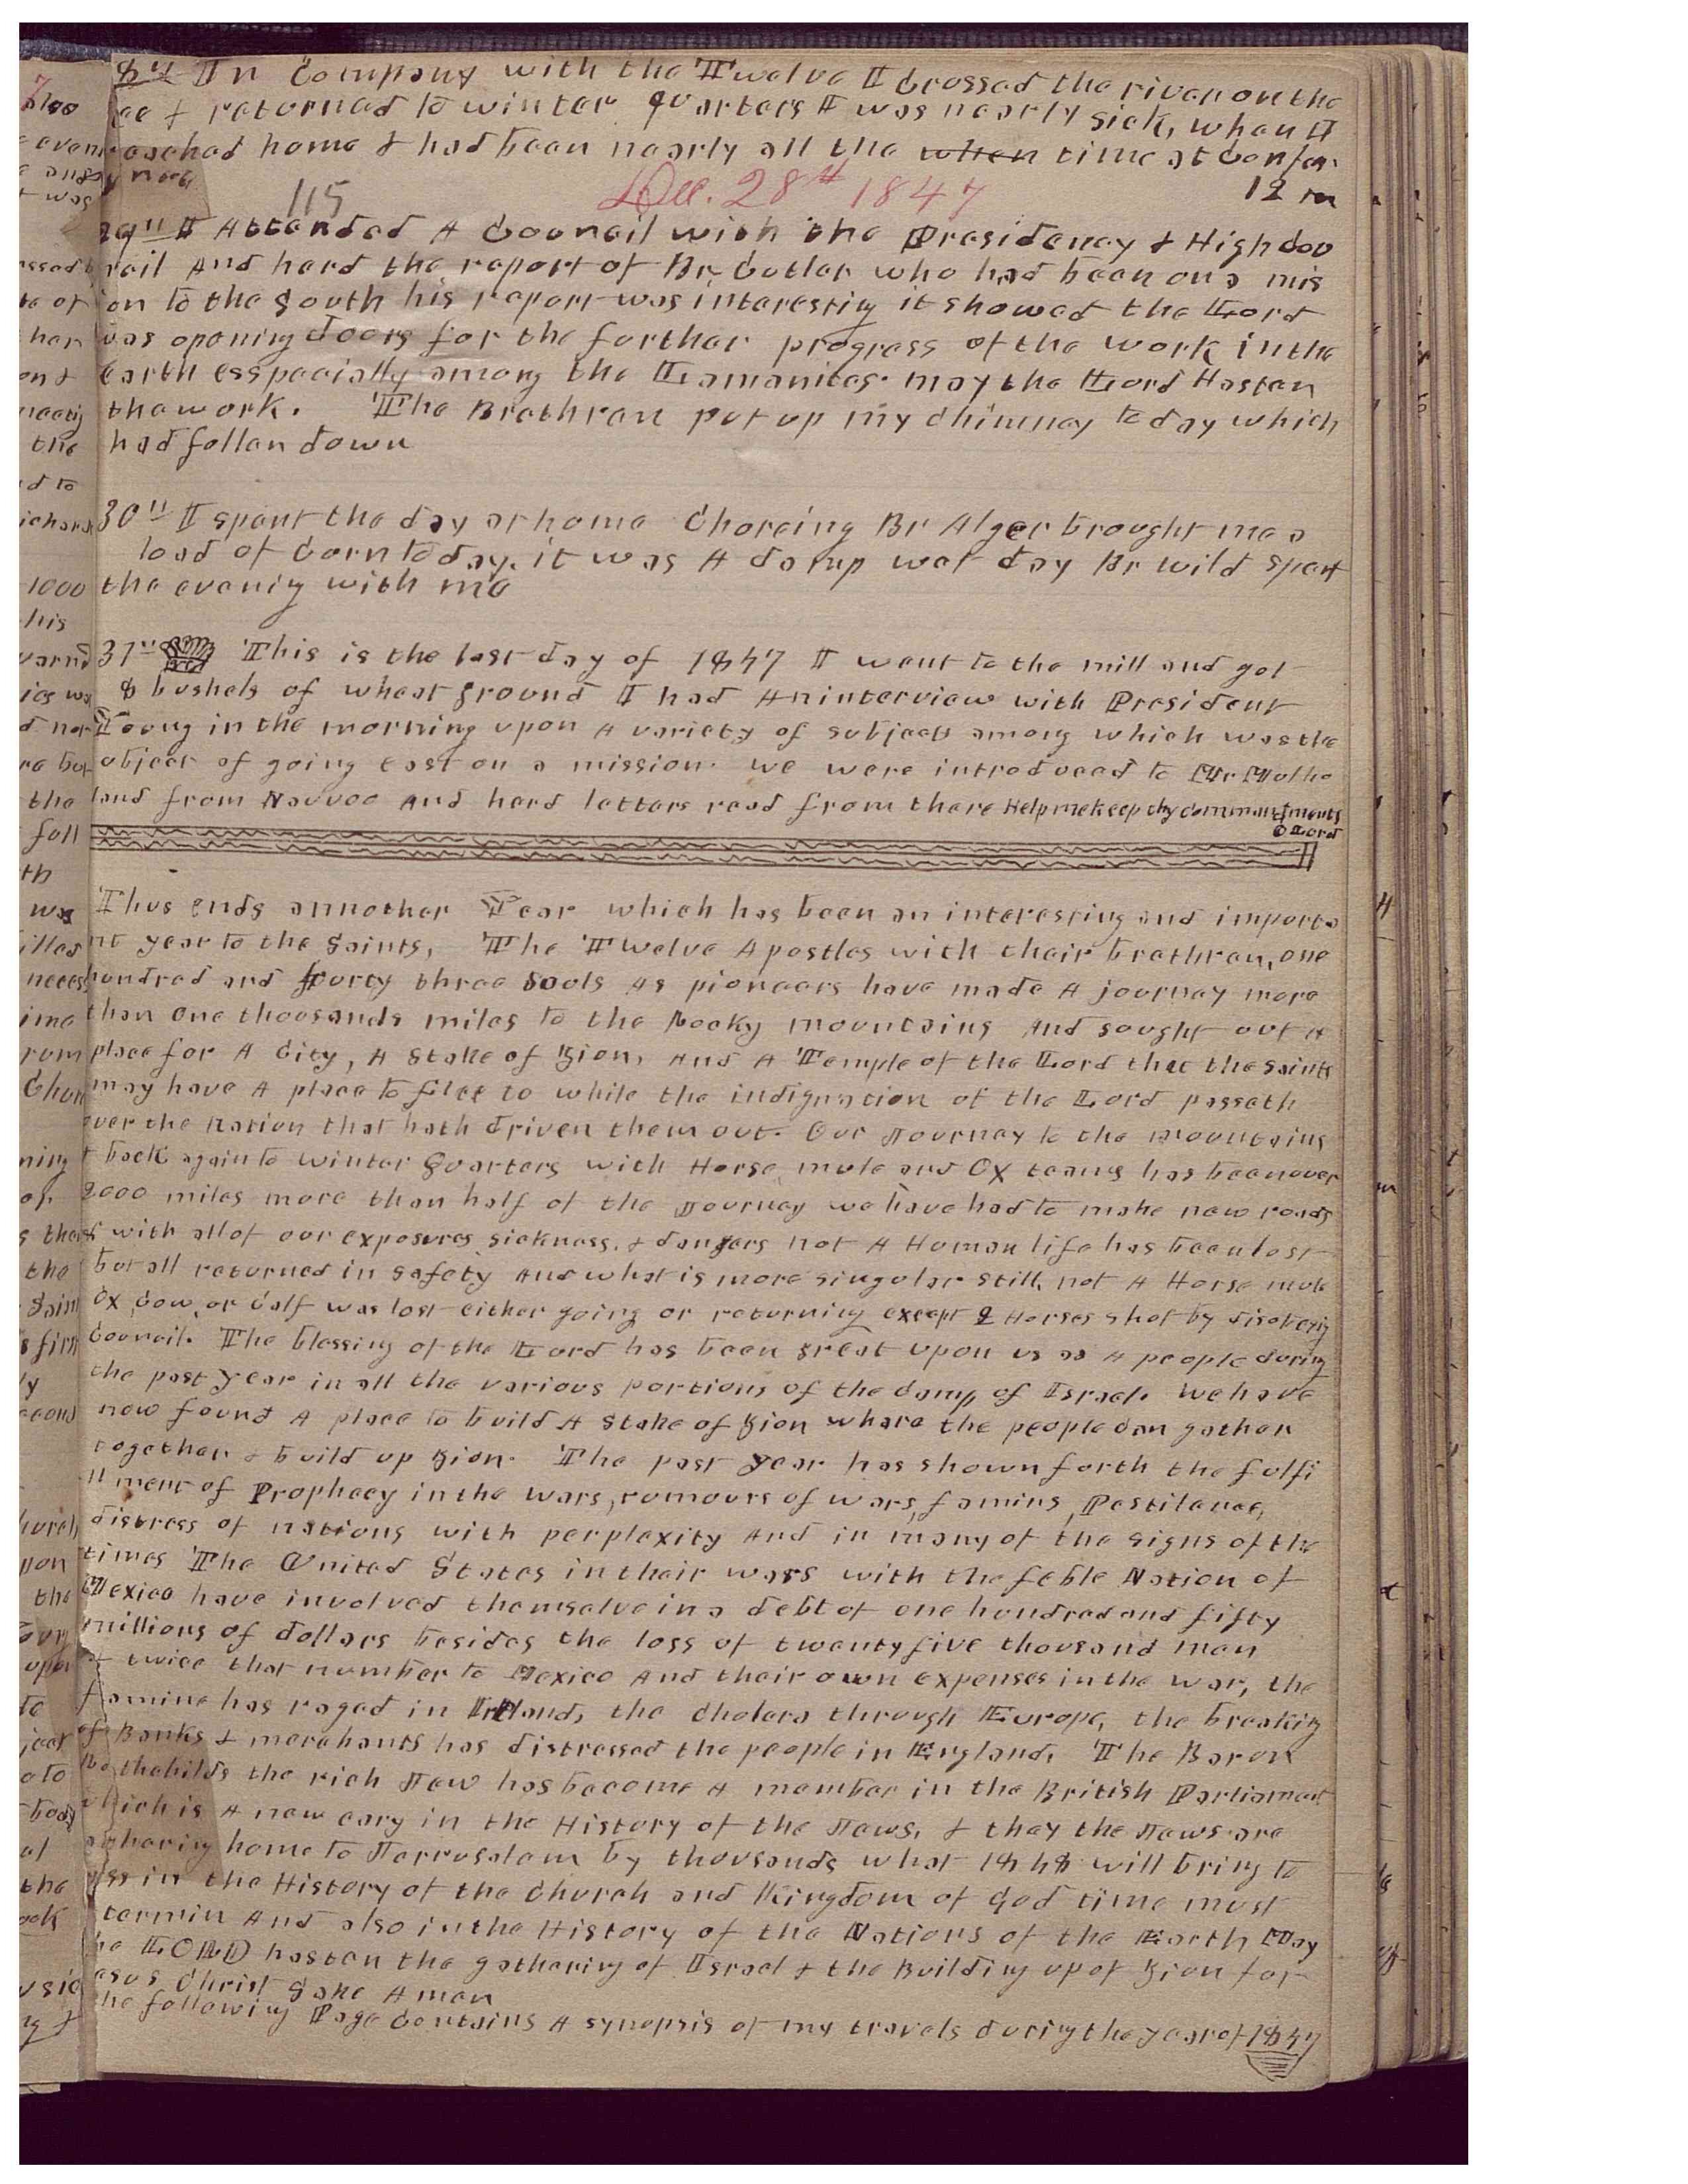 In Company with the Twelve I Crossed the river on the
ice & returned to winter quarters I was nearly sick, when I
reached home & had been nearly all the when time at Confer
115 Dec. 28th 1847 12 m
29" I Attended A Council with the Presidency & High Cou
ncil And herd the report of Br Cutler who had been on a mis
ion to the South his report was interesting it showed the Lord
was opening doors for the further progress of the work in the
earth esspecially among the Lamanites. may the Lord Hasten
the work. The Brethren put up my Chimney to day which
had fallen down
30" I spent the day at home Choreing Br Alger brought me a
load of Corn to day. it was A damp wet day Br Wild spent
the evening with me
31" This is the last day of 1847 I went to the mill and got
8 bushels of wheat ground I had An interview with President
Young in the morning upon A variety of subjects among which was the
object of going east on a mission. we were introduced to Mr Mulho
land from Navvoo And herd letters read from there Help me keep thy commandments
O Lord
Thus ends annother Year which has been an interesting and importa
nt year to the Saints, The Twelve Apostles with their brethren, one
hundred and fourty three Souls as pioneers have made A journey more
than one thousands miles to the Rocky mountains And sought out A
place for A City, A Stake of Zion, And A Temple of the Lord that the Saints
may have A place to flee to while the indignation of the Lord passeth
over the Nation that hath driven them out. Our Journey to the mountains
& back again to winter Quarters with Horse, mule and Ox teams has been over
2000 miles more than half of the Journey we have had to make new roads
& with all of our exposures sickness, & dangers not A Human life has been lost
but all returned in safety And what is more singular still, not A Horse mule
Ox, Cow, or Calf was lost either going or returning except 2 Horses shot by disobeying
Council. The blessing of the Lord has been great upon us as A people during
the past year in all the various portions of the Camp of Israel. We have
now found A place to build A Stake of Zion where the people can gather
together & build up Zion. The past year has shown forth the fulfi
llment of Prophecy in the wars, rumours of wars, famins, Pestilence,
distress of nations with perplexity And in many of the signs of the
times The United States in their wars with the feble Nation of
Mexico have involved themselve in a debt of one hundred and fifty
millions of dollars besides the loss of twenty five thousand men
& twice that number to Mexico And their own expenses in the war, the
famine has raged in Ireland, the Cholera through Europe, the breaking
of Banks & merchants has distressed the people in England. The Baron
Rothchilds the rich Jew has become A member in the British Parliament
which is A new eary in the History of the Jews, & they the Jews are
gathering home to Jerrusalem by thousands what 1848 will bring to
pass in the History of the Church and Kingdom of God time must
termin And also in the History of the Nations of the Earth May
the LORD hasten the gathering of Israel & the Building up of Zion for
Jesus Christ Sake Amen
The following Page Contains A synopsis of my travels during the year of 1847